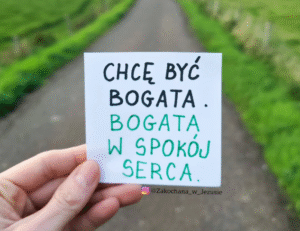 CHCĘ BYĆ
BOGATA.
BOGATA
W SPOKÓJ
SERCA.
@Zakochana_w_Jezusie